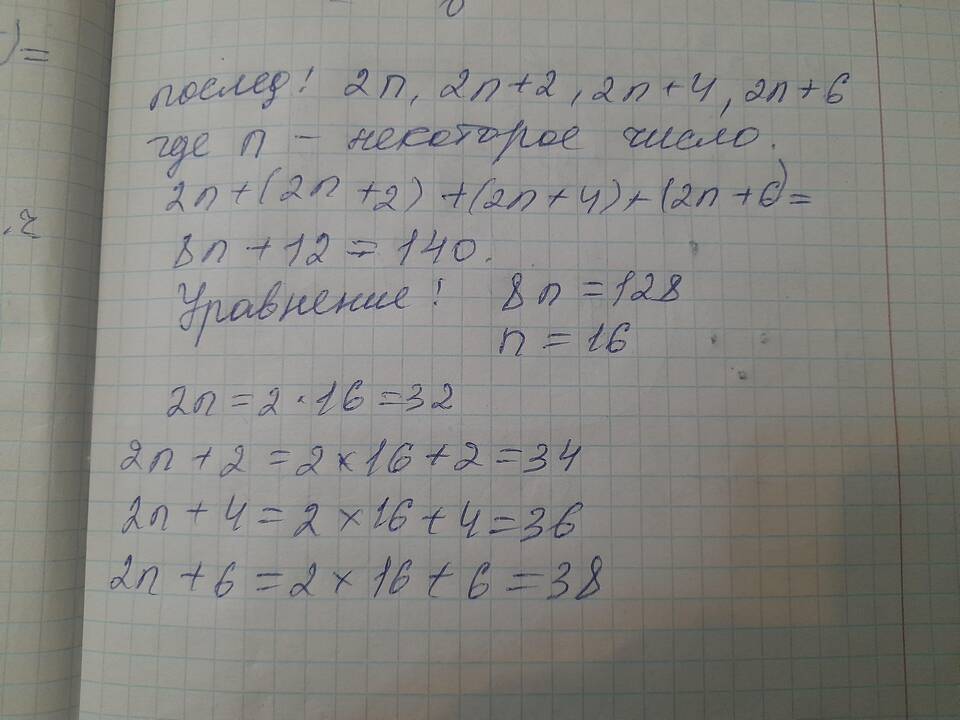 )=
послед! 2n, 2n+2, 2n+4, 2n+6
где n - некоторое число.
2n+(2n+2)+(2n+4)+(2n+6)=
8n+12=140.
Уравнение! 8n=128
n=16
2n=2·16=32
2n+2=2×16+2=34
2n+4=2×16+4=36
2n+6=2×16+6=38